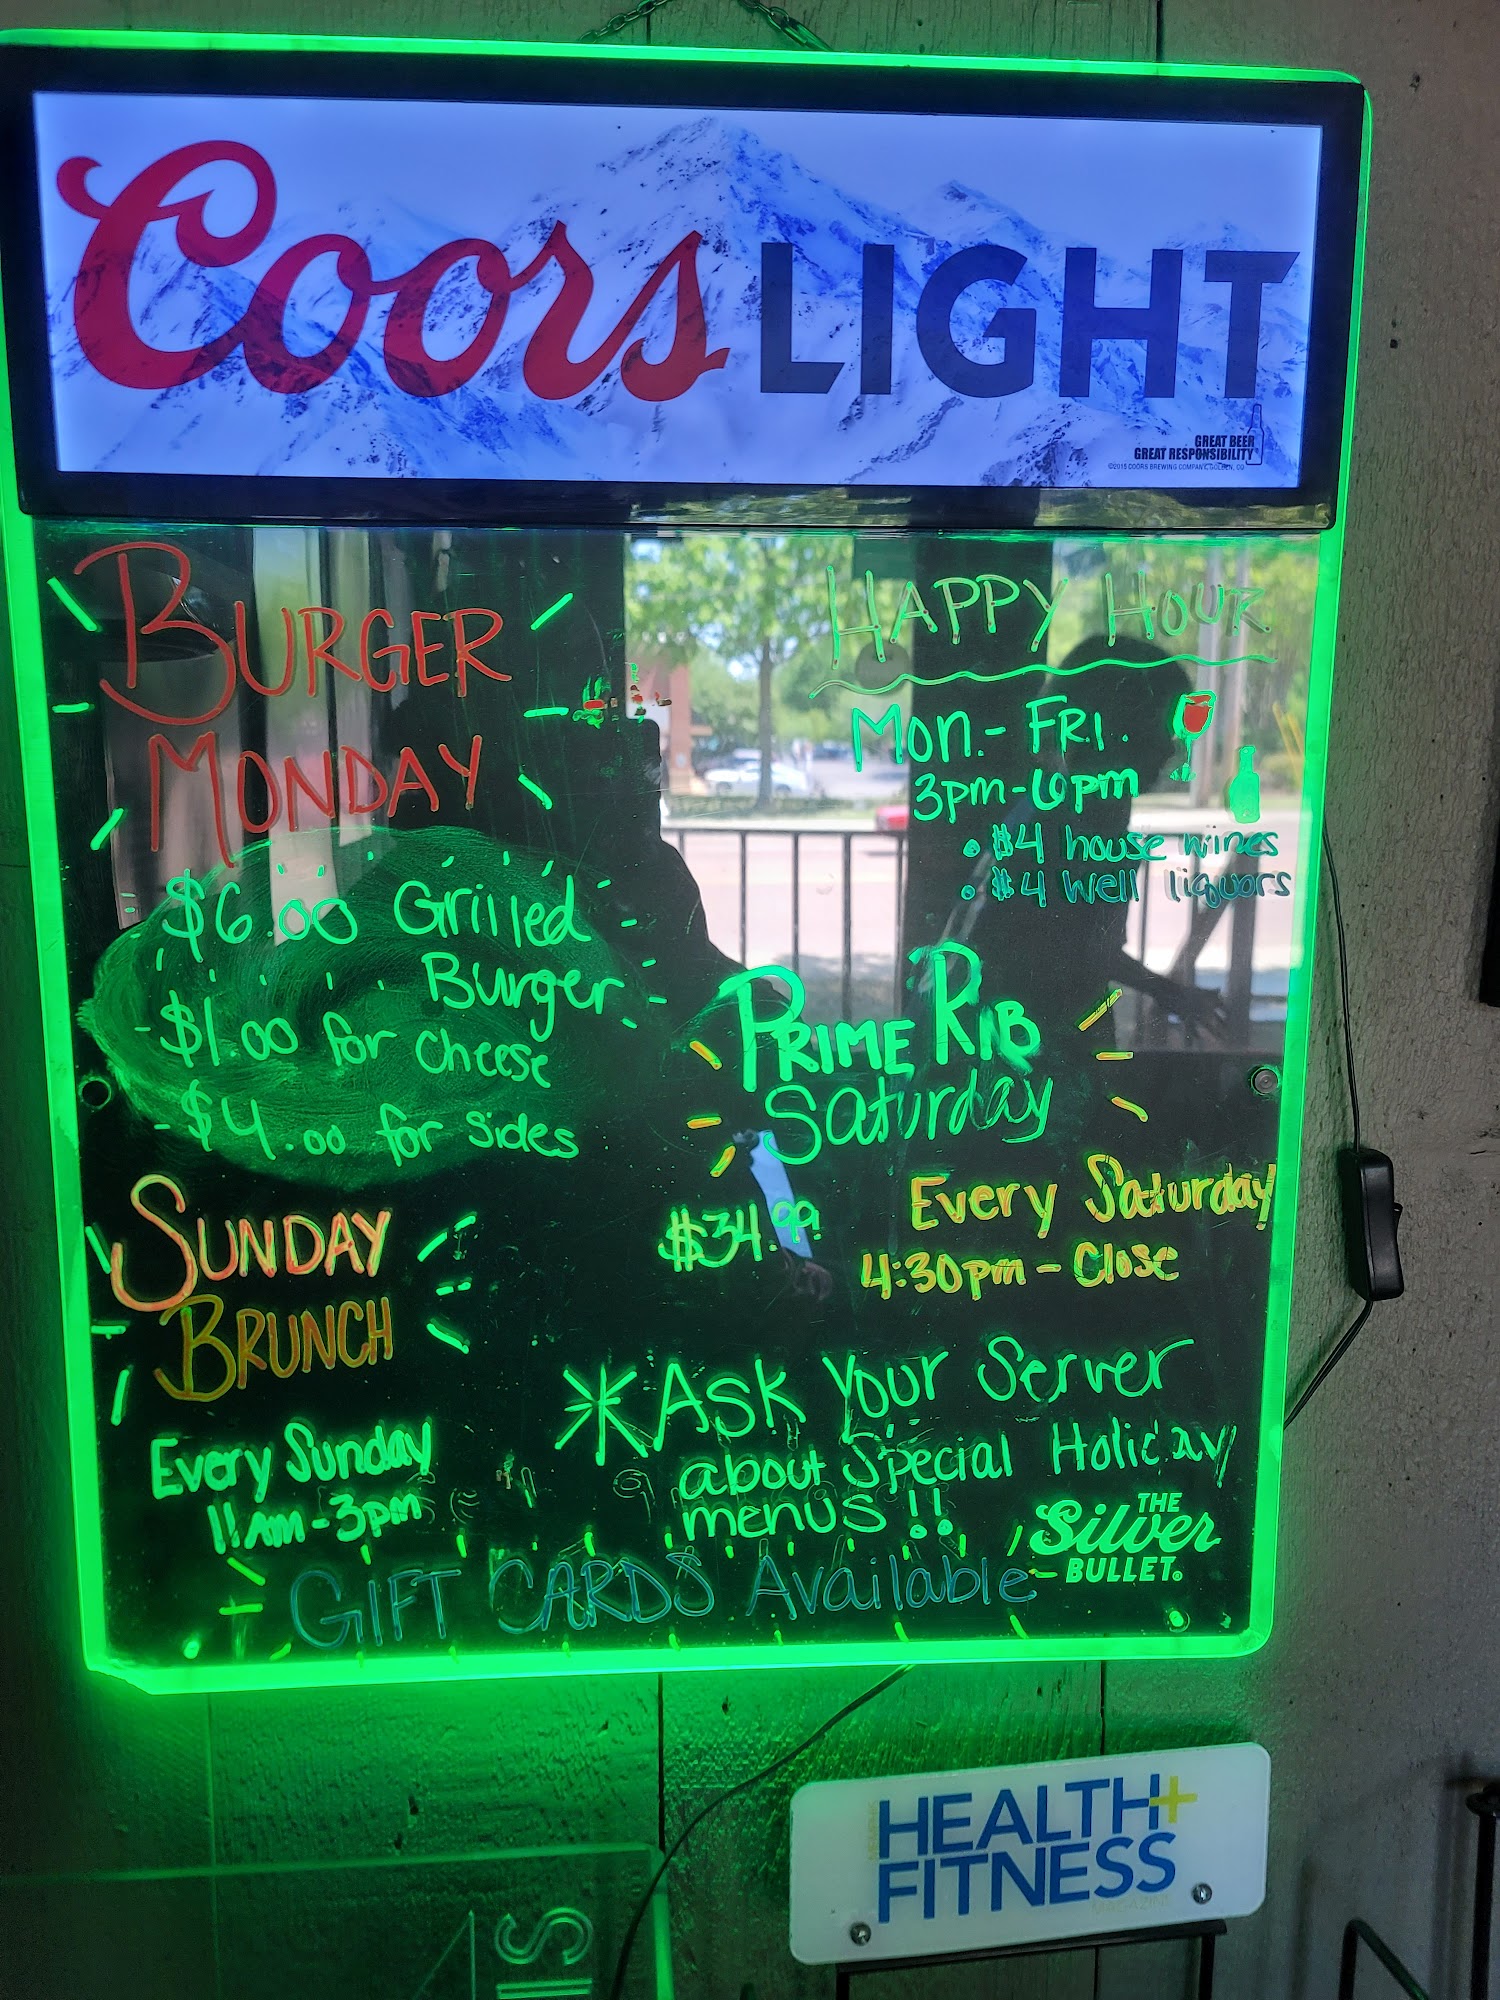 Coors LIGHT
GREAT BEER
GREAT RESPONSIBILITY
©2015 COORS BREWING COMPANY, GOLDEN, CO
BURGER
MONDAY
$6.00 Grilled
Burger
-$1.00 for cheese
-$4.00 for sides
HAPPY HOUR
MON.-FRI.
3pm-6pm
• $4 house wines
• $4 well liquors
PRIME RIB
Saturday
$34.99
Every Saturday
4:30pm-Close
SUNDAY
BRUNCH
Every Sunday
11AM-3pm
*ASK Your Server
about Special Holiday
menus!!
THE
Silver
BULLET.
GIFT CARDS Available
HEALTH+
FITNESS
MAGAZINE